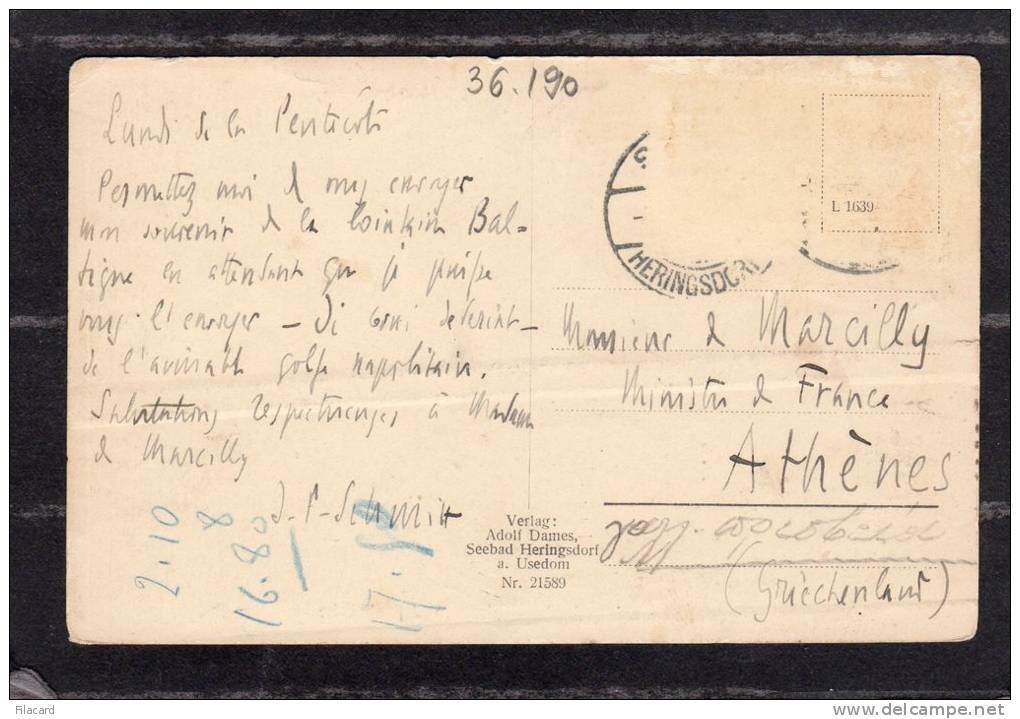 36.190
Lundi de la Pentecôte
Permettez moi de vous envoyer
mon souvenir de la lointaine Bal-
tique en attendant que je puisse
vous l'envoyer –
de l'aimable golfe napolitain.
Salutations respectueuses à Madame
de Marcilly
J-P-Schmitt
2.10
8
16.80
17.
Verlag:
Adolf Dames,
Seebad Heringsdorf
a. Usedom
Nr. 21589
HERINGSDORF
L 1639
Monsieur de Marcilly
Ministre de France
Athènes
(Griechenland)
filacard
http://www.delcampe.net